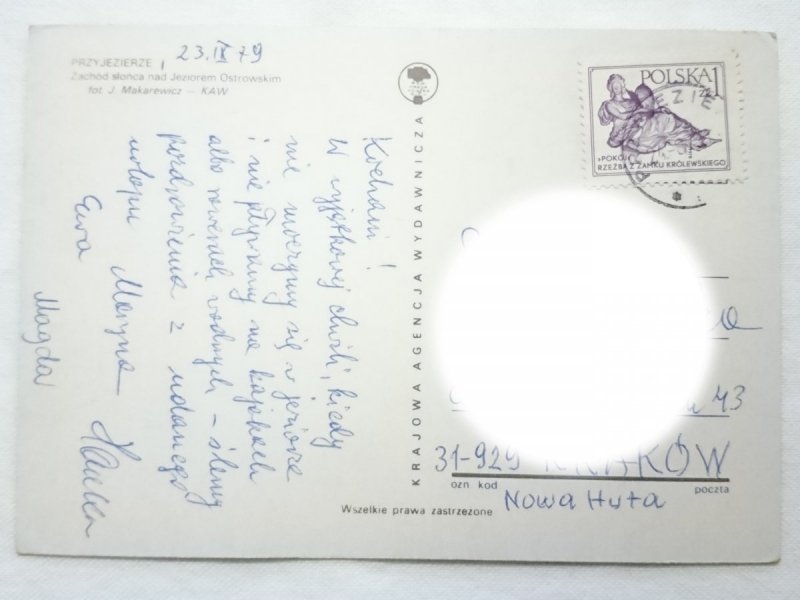 PRZYJEZIERZE, 23.IX 79
Zachód słońca nad Jeziorem Ostrowskim
fot. J. Makarewicz — KAW
Kochani!
W wyjątkowej chwili, kiedy
nie moczymy się w jeziorze
i nie pływamy na kajakach
albo rowerach wodnych – ślemy
pozdrowienia z udanego
urlopu
Ewa Maryna
Magda
KRAJOWA AGENCJA WYDAWNICZA
POLSKA 1
ZŁ
»POKÓJ«
RZEŹBA Z ZAMKU KRÓLEWSKIEGO
43
31-929 KRAKÓW
ozn kod poczta
Nowa Huta
Wszelkie prawa zastrzeżone